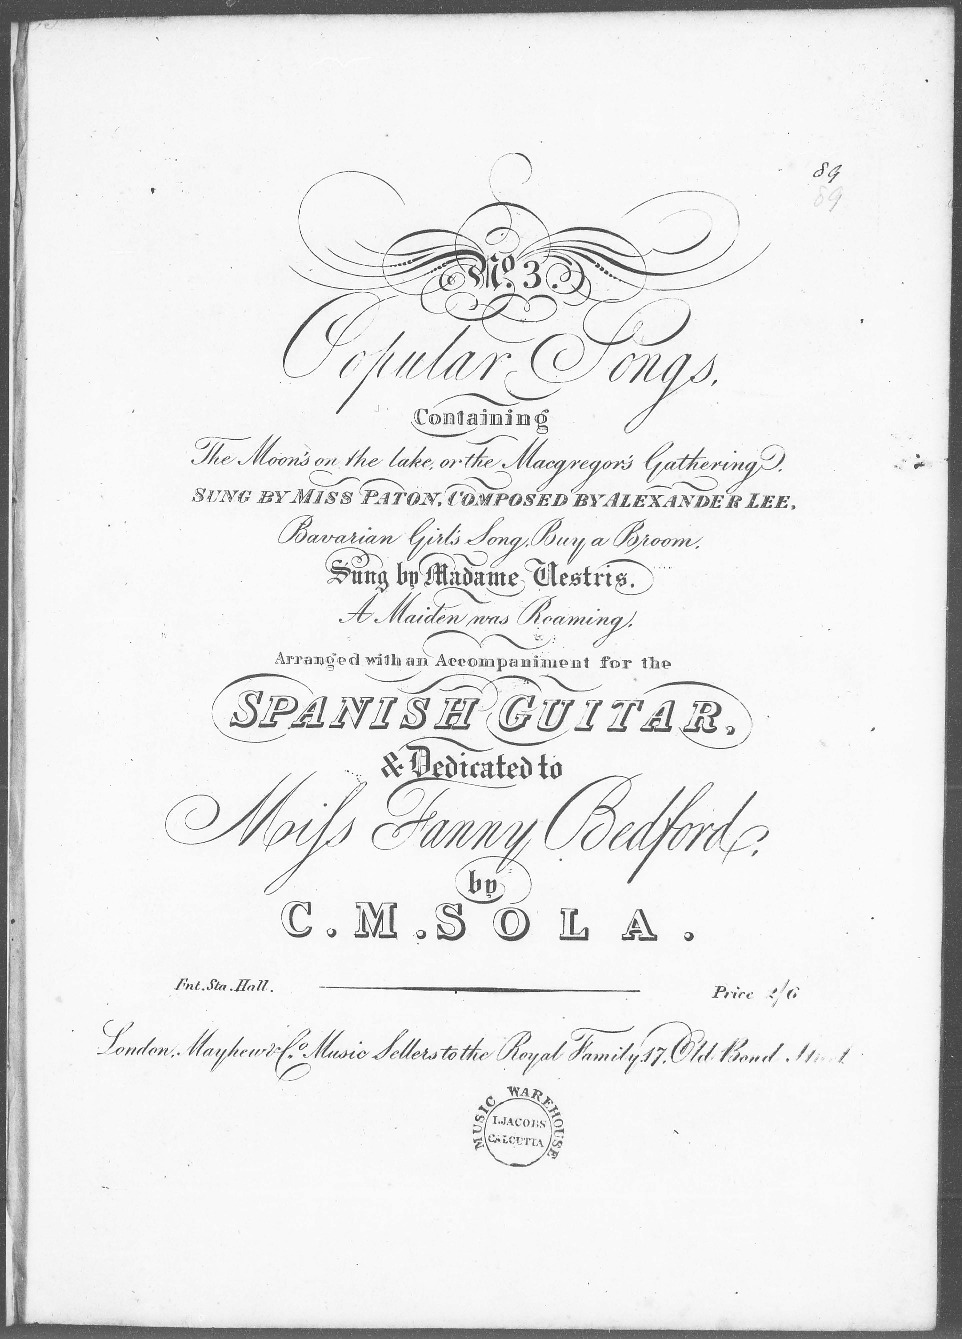 89
89
No. 3.
Popular Songs,
Containing
The Moon's on the lake, or the Macgregor's Gathering.
SUNG BY MISS PATON, COMPOSED BY ALEXANDER LEE,
Bavarian Girl's Song, Buy a Broom,
Sung by Madame Vestris.
A Maiden was Roaming,
Arranged with an Accompaniment for the
SPANISH GUITAR,
& Dedicated to
Miss Fanny Bedford,
by
C. M. SOLA.
Ent. Sta. Hall.
Price 2/6
London, Mayhew & Co. Music Sellers to the Royal Family, 17, Old Bond Street
MUSIC WAREHOUSE
I. JACOBS
CALCUTTA